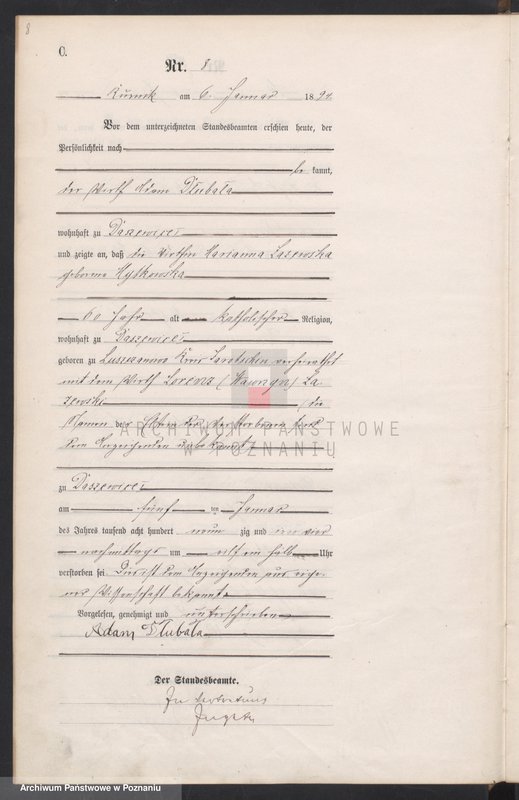 8
C.
Nr. 8
Kurnik am 6. Januar 1894.
Vor dem unterzeichneten Standesbeamten erschien heute, der
Persönlichkeit nach
be kannt,
der Wirth Adam Dłubała
wohnhaft zu Daszewice
und zeigte an, daß die Wirthin Marianna Lasewska
geborene
60 Jahr alt katholischer Religion,
wohnhaft zu Daszewice
geboren zu Kreis verheirathet
mit dem Wirth Lorenz (Wawrzyn) La-
zewski, die
Namen der Eltern der Verstorbenen sind
dem Anzeigenden unbekannt
ARCHIWUM PAŃSTWOWE
W POZNANIU
zu Daszewice
am fünf ten Januar
des Jahres tausend acht hundert neun zig und vier
nachmittags um elf ein halb Uhr
verstorben sei. Dies ist dem Anzeigenden aus eige-
ner Wissenschaft bekannt
Vorgelesen, genehmigt und unterschrieben
Adam Dłubała
Der Standesbeamte.
In Vertretung
Archiwum Państwowe w Poznaniu